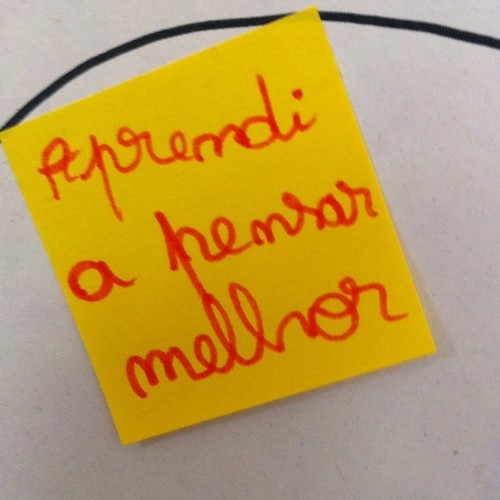 Aprendi
a pensar
melhor